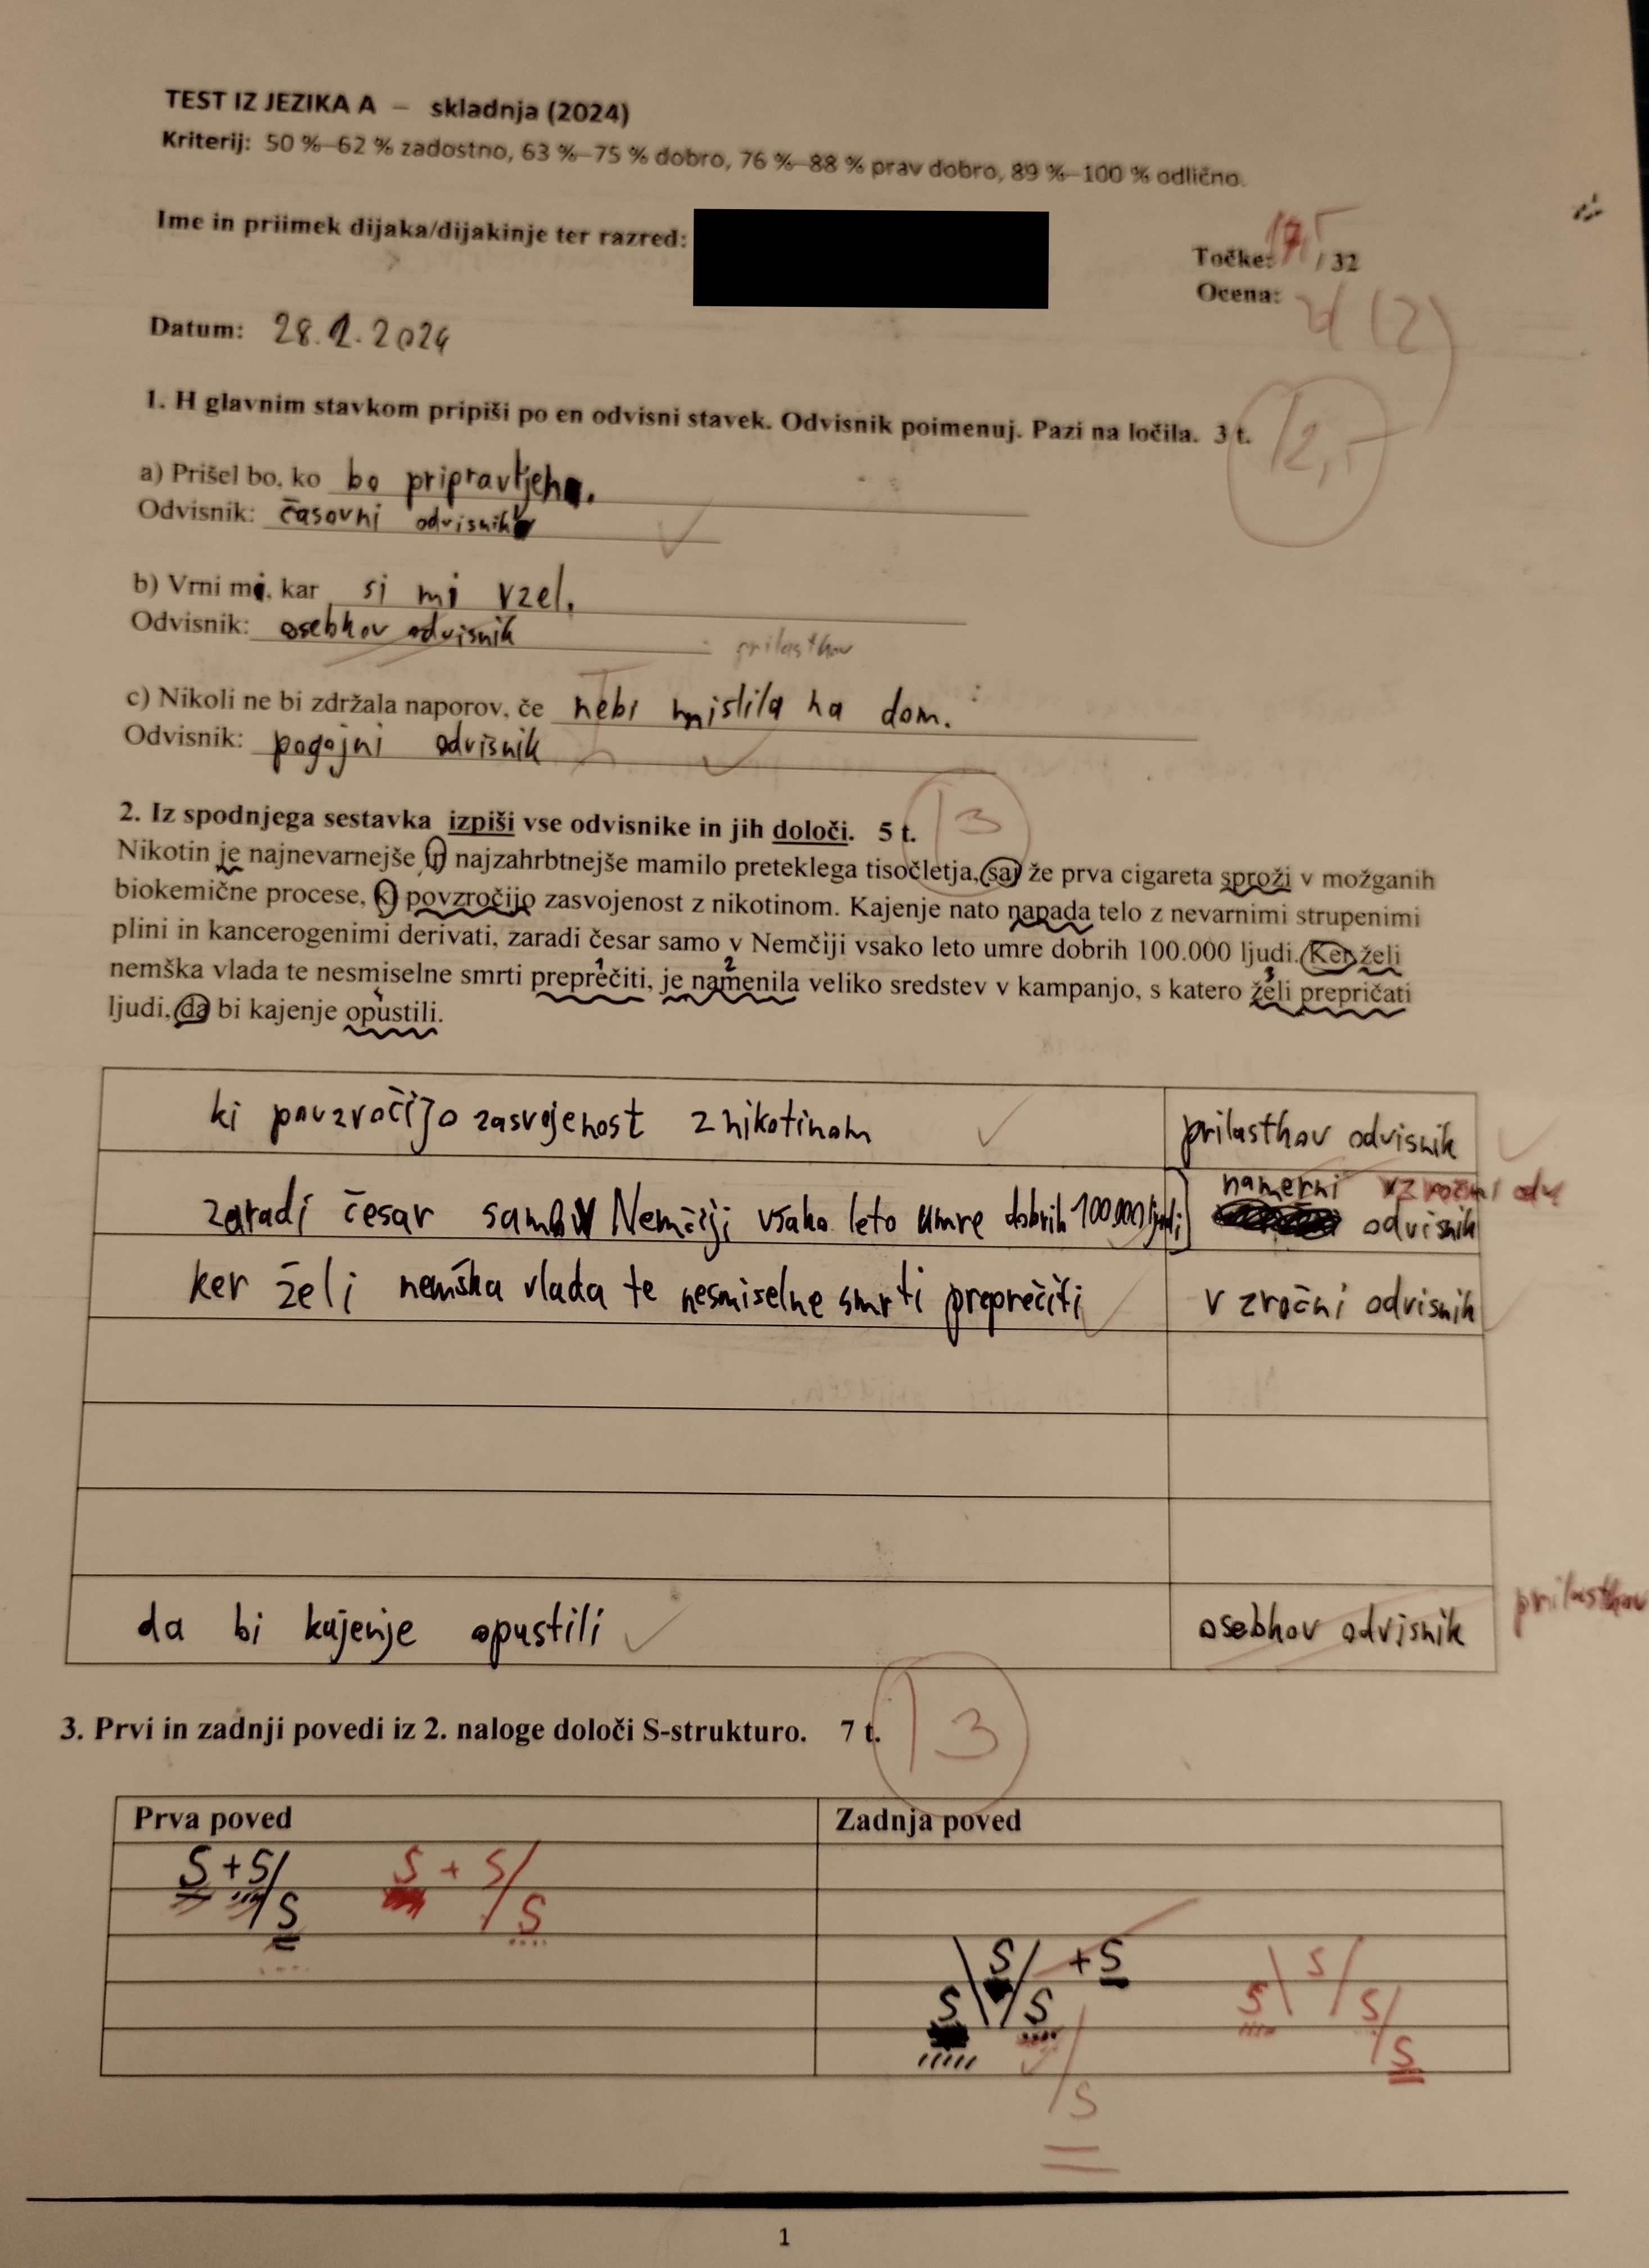 TEST IZ JEZIKA A – skladnja (2024)
Kriterij: 50 %–62 % zadostno, 63 %–75 % dobro, 76 %–88 % prav dobro, 89 %–100 % odlično.
Ime in priimek dijaka/dijakinje ter razred:
Točke: 17,5 / 32
Ocena: zd (2)
Datum: 28.2.2024
1. H glavnim stavkom pripiši po en odvisni stavek. Odvisnik poimenuj. Pazi na ločila. 3 t.
12,5
a) Prišel bo, ko bo pripravljen.
Odvisnik: časovni odvisnik
b) Vrni mi, kar si mi vzel.
Odvisnik: osebkov odvisnik prilastkov
c) Nikoli ne bi zdržala naporov, če nebi mislila na dom.
Odvisnik: pogojni odvisnik
2. Iz spodnjega sestavka izpiši vse odvisnike in jih določi. 5 t. 3
Nikotin je najnevarnejše in najzahrbtnejše mamilo preteklega tisočletja, saj že prva cigareta sproži v možganih
biokemične procese, ki povzročijo zasvojenost z nikotinom. Kajenje nato napada telo z nevarnimi strupenimi
plini in kancerogenimi derivati, zaradi česar samo v Nemčiji vsako leto umre dobrih 100.000 ljudi. Ker želi
nemška vlada te nesmiselne smrti preprečiti, je namenila veliko sredstev v kampanjo, s katero želi prepričati
ljudi, da bi kajenje opustili.
ki povzročijo zasvojenost z nikotinom prilastkov odvisnik
zaradi česar samo v Nemčiji vsako leto umre dobrih 100.000 ljudi namerni odvisnik vzročni odv
ker želi nemška vlada te nesmiselne smrti preprečiti vzročni odvisnik
da bi kajenje opustili osebkov odvisnik prilastkov
3. Prvi in zadnji povedi iz 2. naloge določi S-strukturo. 7 t. 3
Prva poved Zadnja poved
S + S/ S + S/
/S /S
\S/ + S \ S /
S\ /S S\ /S
/S /S
1